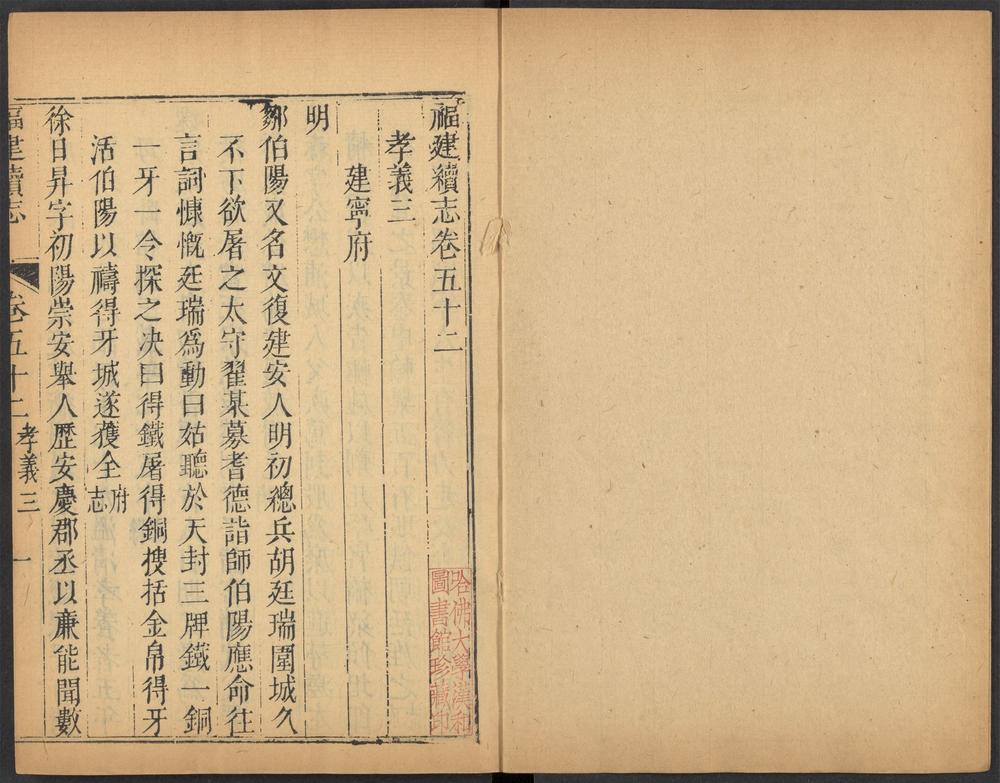 福建續志卷五十二
孝義三
建寧府
明
鄒伯陽又名文復建安人明初總兵胡廷瑞圍城久
不下欲屠之太守翟某募耆德詣師伯陽應命往
言詞慷慨廷瑞爲動曰姑聽於天封三牌鐵一銅
一牙一令探之決曰得鐵屠得銅搜括金帛得牙
活伯陽以禱得牙城遂獲全府志
徐日昇字初陽崇安舉人歷安慶郡丞以亷能聞數
福建續志
卷五十二
孝義三
一
哈佛大學漢和
圖書館珍藏印